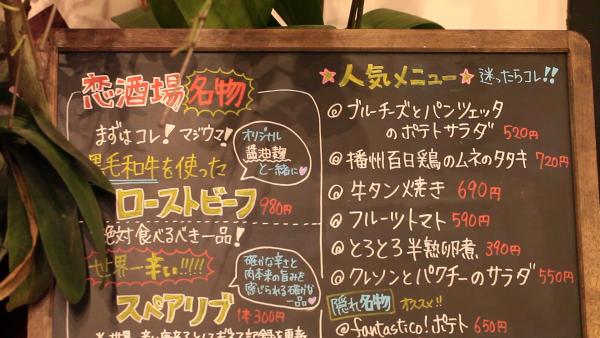 恋酒場 名物
まずはコレ! マジウマ!
黒毛和牛を使った
ローストビーフ 980円
オリジナル
醤油麹
と一緒に
絶対食べるべき一品!
世界一辛い!!!!!
スペアリブ 1本300円
確かな辛さと
肉本来の旨みを
感じられる確かな
一品
人気メニュー 迷ったらコレ!!
@ブルーチーズとパンツェッタ
のポテトサラダ 520円
@播州百日鶏のムネのタタキ 720円
@牛タン焼き 690円
@フルーツトマト 590円
@とろとろ半熟卵煮 390円
@クレソンとパクチーのサラダ 550円
隠れ名物 オススメ!!
@fantastico!ポテト 650円